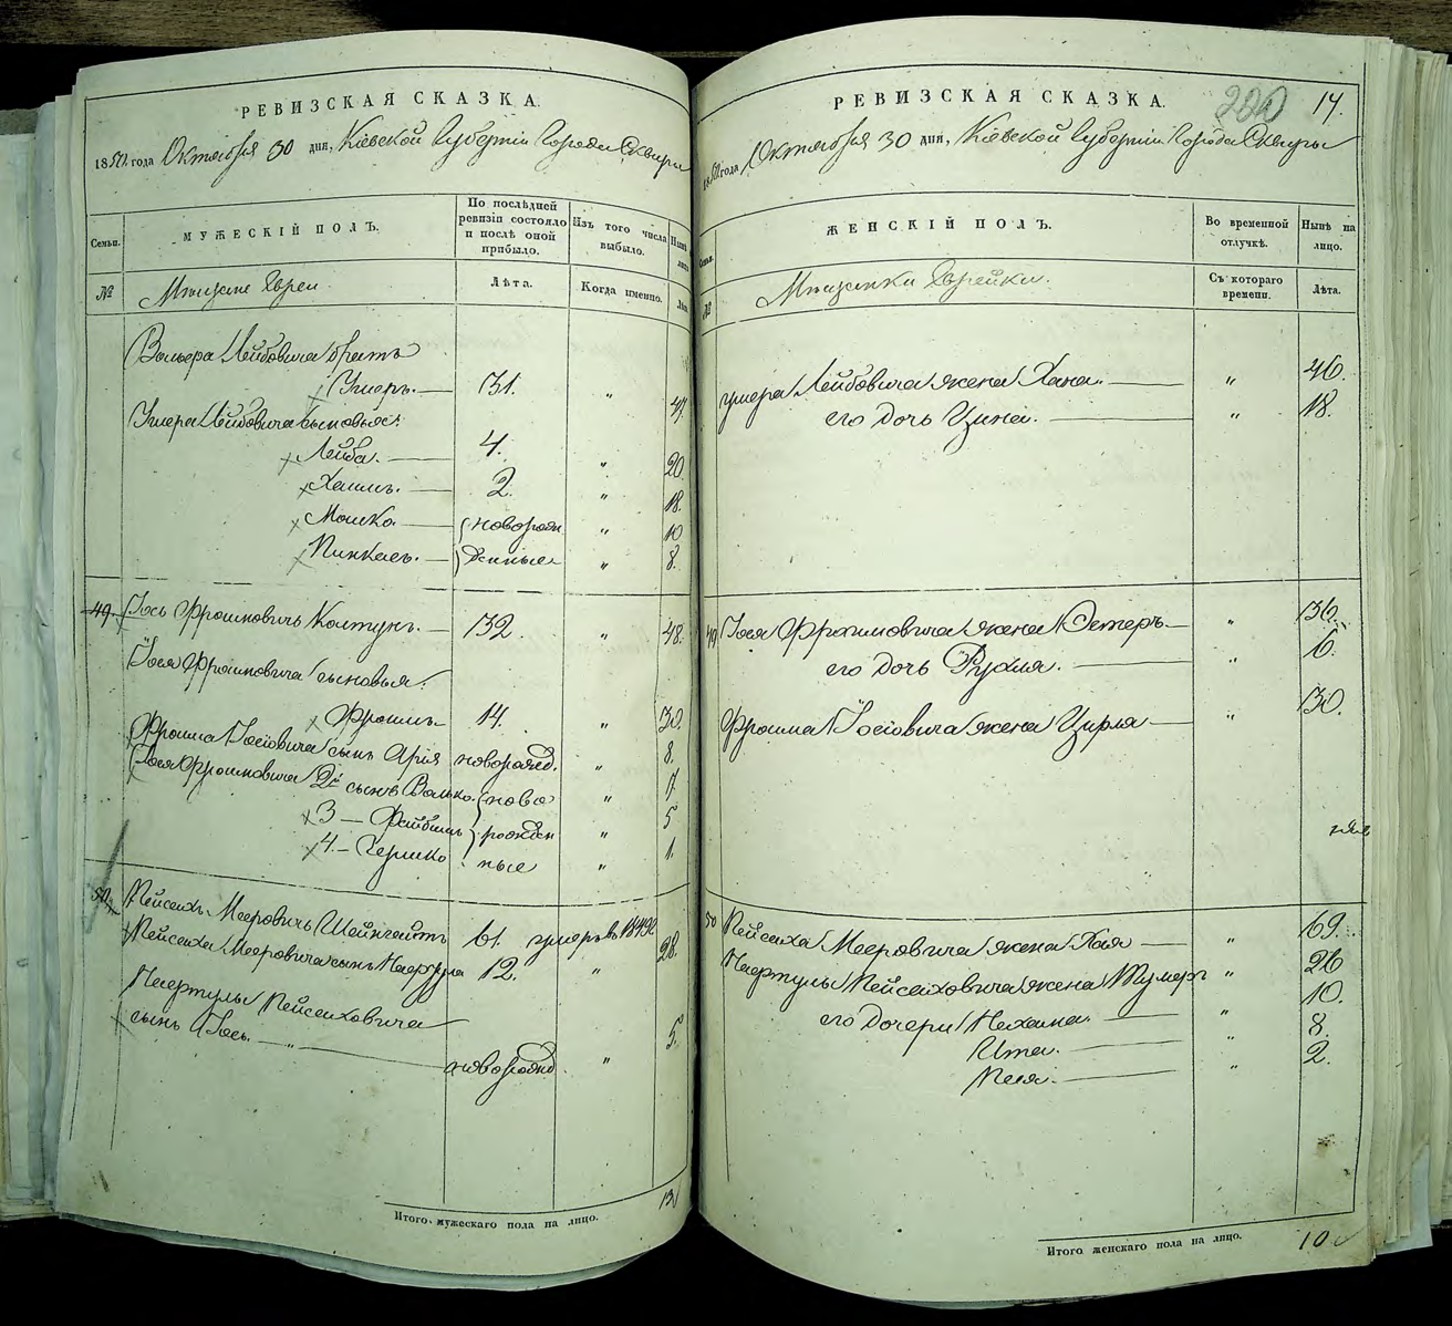 РЕВИЗСКАЯ СКАЗКА.
1850 года Октября 30 дня, Кіевской Губерніи Города Сквиры
Семьи.
МУЖЕСКІЙ ПОЛЪ.
По послѣдней
ревизіи состояло
и послѣ оной
прибыло.
Изъ того числа
выбыло.
Нынѣ
на
лицо
№
Мѣщане Евреи.
Лѣта.
Когда именно.
Лѣта
Лейбовича братъ
31. „ 47.
Лейбовича сыновья:
Лейба. 4. „ 20
Хаимъ. 2. „ 18.
Мошко. новорож „ 10
Пинхасъ. денные „ 8.
49. Іось Фроимовичъ Колтунъ. 32. „ 48.
Іося Фроимовича сыновья:
Фроимъ 14. „ 30.
Фроима Іосіовича сынъ Арія новорожд. „ 8.
Іося Фроимовича 2й сынъ Волько. ново „ 7.
3 — Фойбишъ рожден „ 5
4. — Гершко ные „ 1.
50. Пейсахъ Мееровичъ 61. умеръ въ 1849
Пейсаха Мееровича сынъ 12. „ 28.
Пейсаховича
сынъ Іось. — „ — новорожд. „ 5.
Итого мужескаго пола на лицо.
13
РЕВИЗСКАЯ СКАЗКА.
200 14.
1850 года Октября 30 дня, Кіевской Губерніи Города Сквиры
Семьи.
ЖЕНСКІЙ ПОЛЪ.
Во временной
отлучкѣ.
Нынѣ на
лицо.
№
Мѣщанки Еврейки.
Съ котораго
времени.
Лѣта.
Лейбовича жена Хана. „ 46.
его дочь Ципа. „ 18.
49 Іося Фроимовича жена Эстеръ. „ 36.
его дочь Рухля. „ 6.
Фроима Іосіовича жена Цирля „ 30.
50 Пейсаха Мееровича жена Хая „ 69.
Пейсаховича жена „ 26
его дочери Нехама. „ 10.
Ита. „ 8.
Песя. „ 2.
Итого женскаго пола на лицо.
10